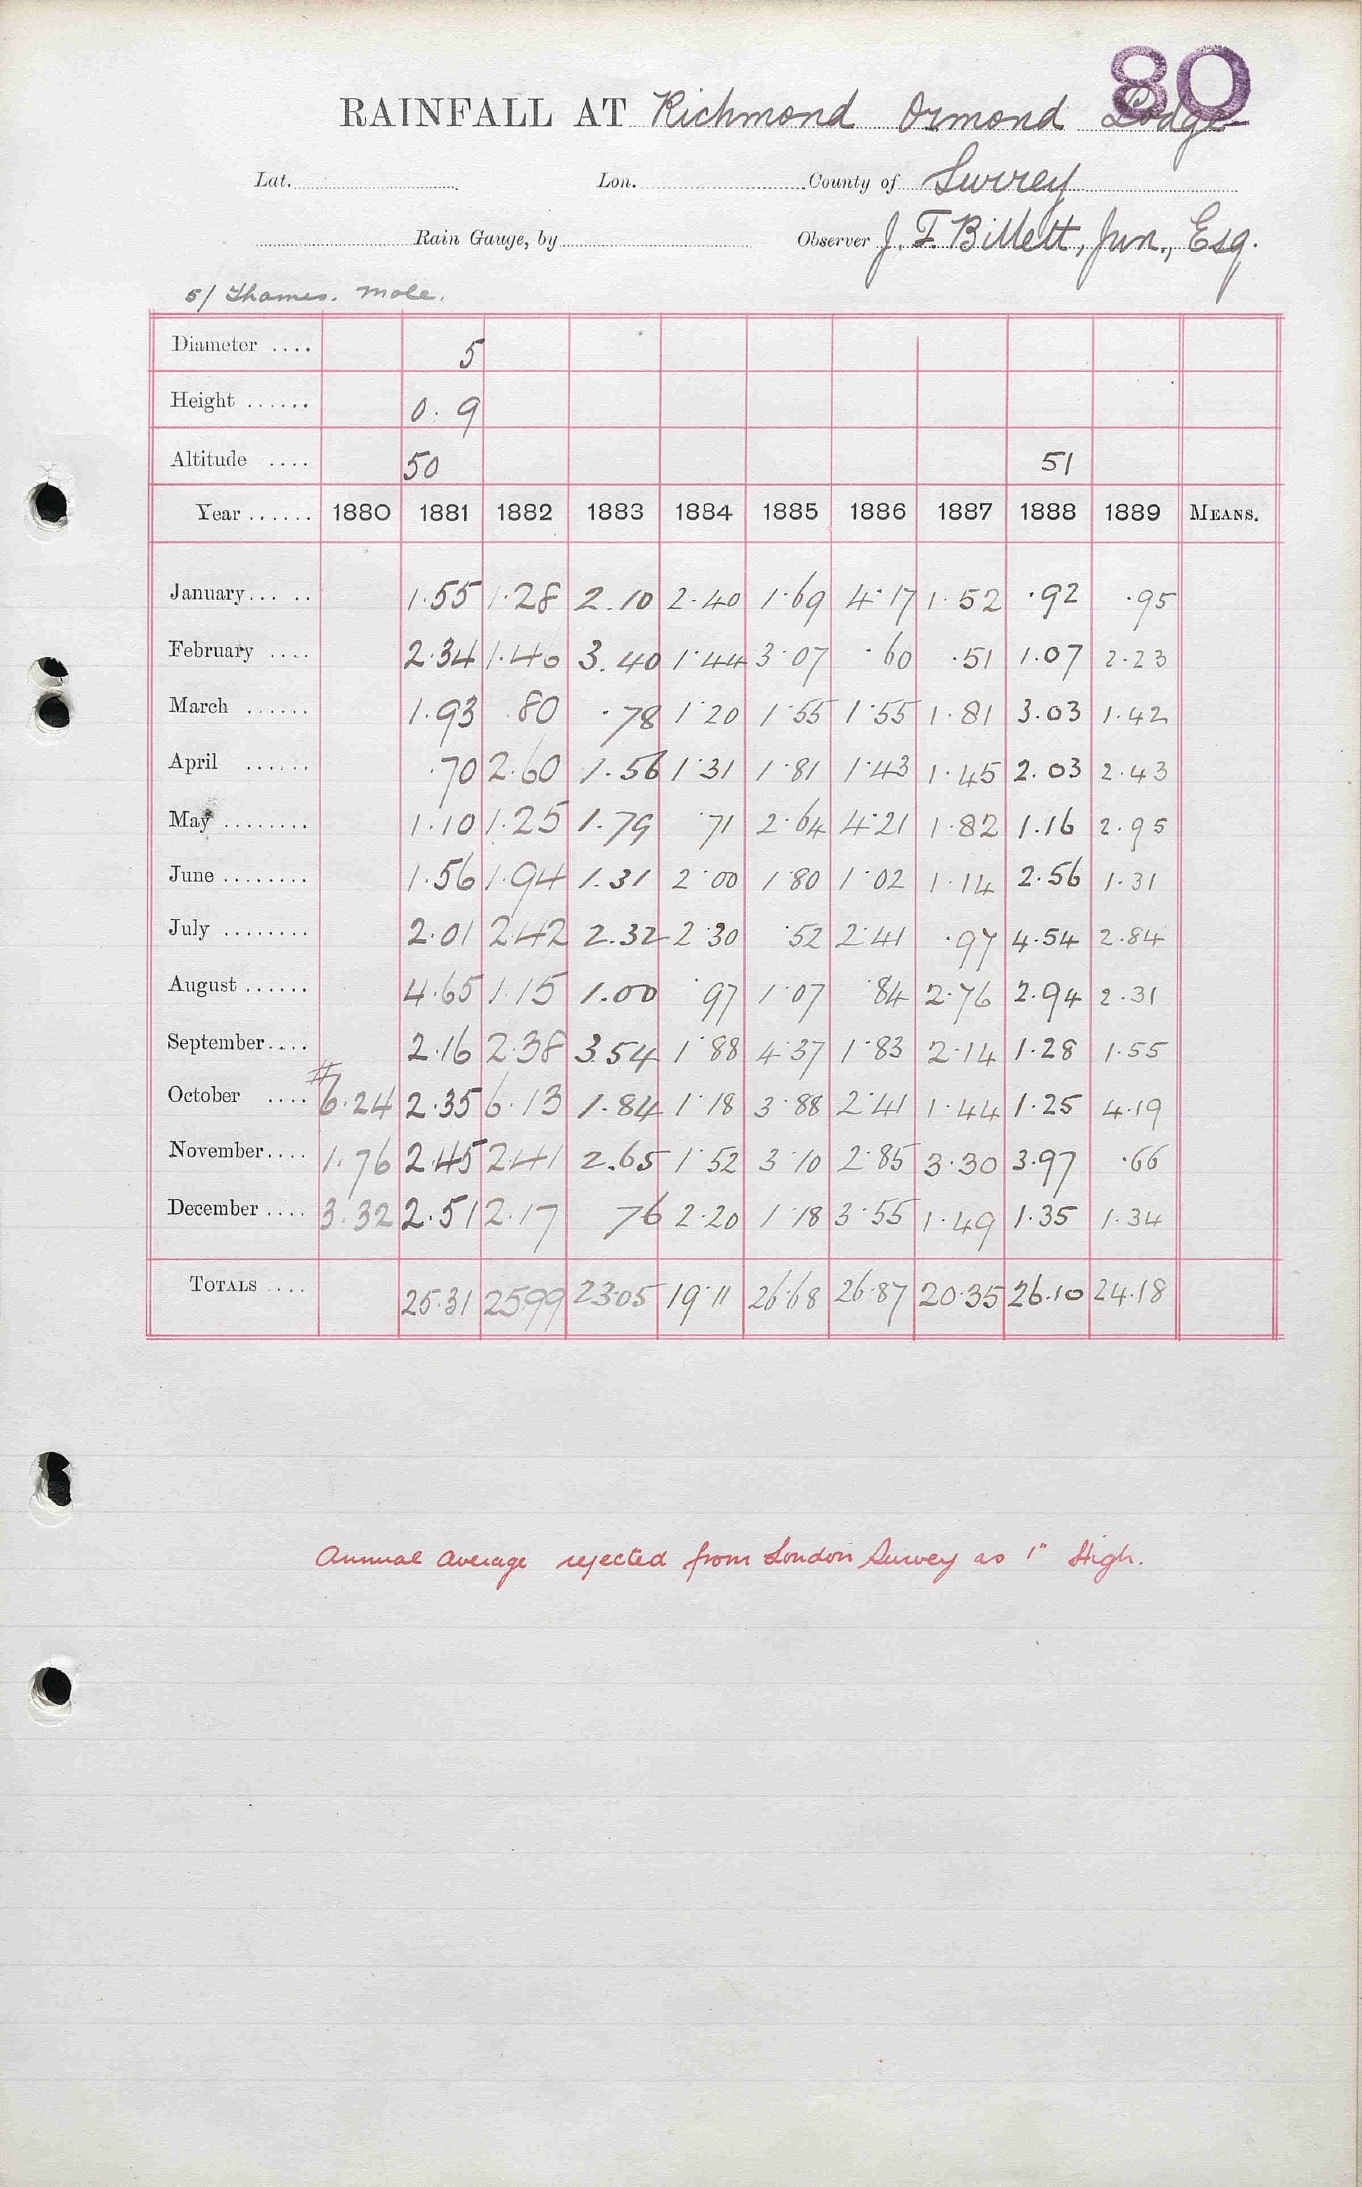 80
RAINFALL AT Richmond Ormond Lodge
Lat. Lon. County of Surrey
Rain Gauge, by Observer J. F. Billett, Jun., Esq.
5/ Thames. Mole.
Diameter .... 5
Height ...... 0.9
Altitude .... 50 51
Year ...... 1880 1881 1882 1883 1884 1885 1886 1887 1888 1889 MEANS.
January... .. 1.55 1.28 2.10 2.40 1.69 4.17 1.52 .92 .95
February .... 2.34 1.46 3.40 1.44 3.07 .60 .51 1.07 2.23
March ...... 1.93 .80 .78 1.20 1.55 1.55 1.81 3.03 1.42
April ...... .70 2.60 1.56 1.31 1.81 1.43 1.45 2.03 2.43
May ........ 1.10 1.25 1.79 .71 2.64 4.21 1.82 1.16 2.95
June ........ 1.56 1.94 1.31 2.00 1.80 1.02 1.14 2.56 1.31
July ........ 2.01 2.42 2.32 2.30 .52 2.41 .97 4.54 2.84
August ...... 4.65 1.15 1.00 .97 1.07 .84 2.76 2.94 2.31
September.... 2.16 2.38 3.54 1.88 4.37 1.83 2.14 1.28 1.55
October .... #6.24 2.35 6.13 1.84 1.18 3.88 2.41 1.44 1.25 4.19
November.... 1.76 2.45 2.41 2.65 1.52 3.10 2.85 3.30 3.97 .66
December .... 3.32 2.51 2.17 76 2.20 1.18 3.55 1.49 1.35 1.34
TOTALS .... 25.31 25.99 23.05 19.11 26.68 26.87 20.35 26.10 24.18
Annual Average rejected from London Survey as 1" High.